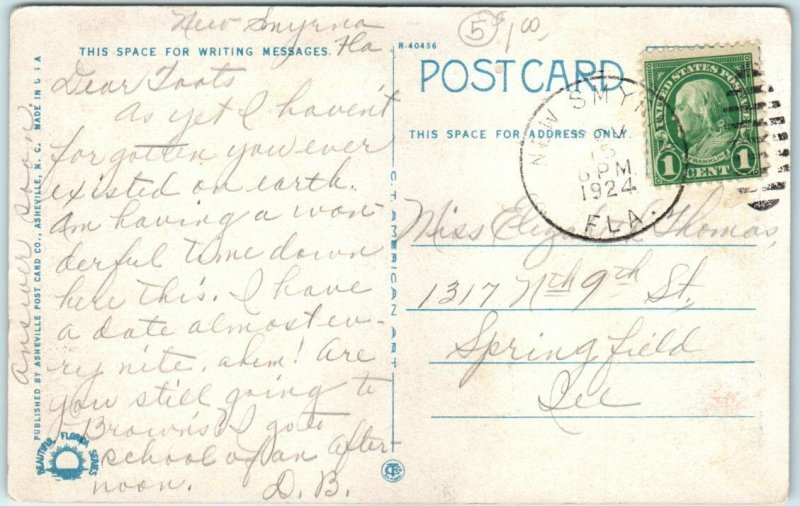 New Smyrna
Fla.
THIS SPACE FOR WRITING MESSAGES.
Dear Toots
As yet I haven't
forgotten you ever
existed on earth.
Am having a won-
derful time down
here this. I have
a date almost ev-
ry nite, ahem! Are
you still going to
Brown's? I go to
school of an after-
noon. D. B.
answer soon.
PUBLISHED BY ASHEVILLE POST CARD CO., ASHEVILLE, N. C. MADE IN U S A
BEAUTIFUL FLORIDA SERIES
R-40456
C.T. AMERICAN ART
5
1.00
POST CARD
THIS SPACE FOR ADDRESS ONLY.
NEW SMYR
6 PM
1924
FLA.
UNITED STATES POSTAGE
FRANKLIN
1 CENT 1
Miss Elizabeth Thomas,
1317 Nth 9th St,
Springfield
Ill